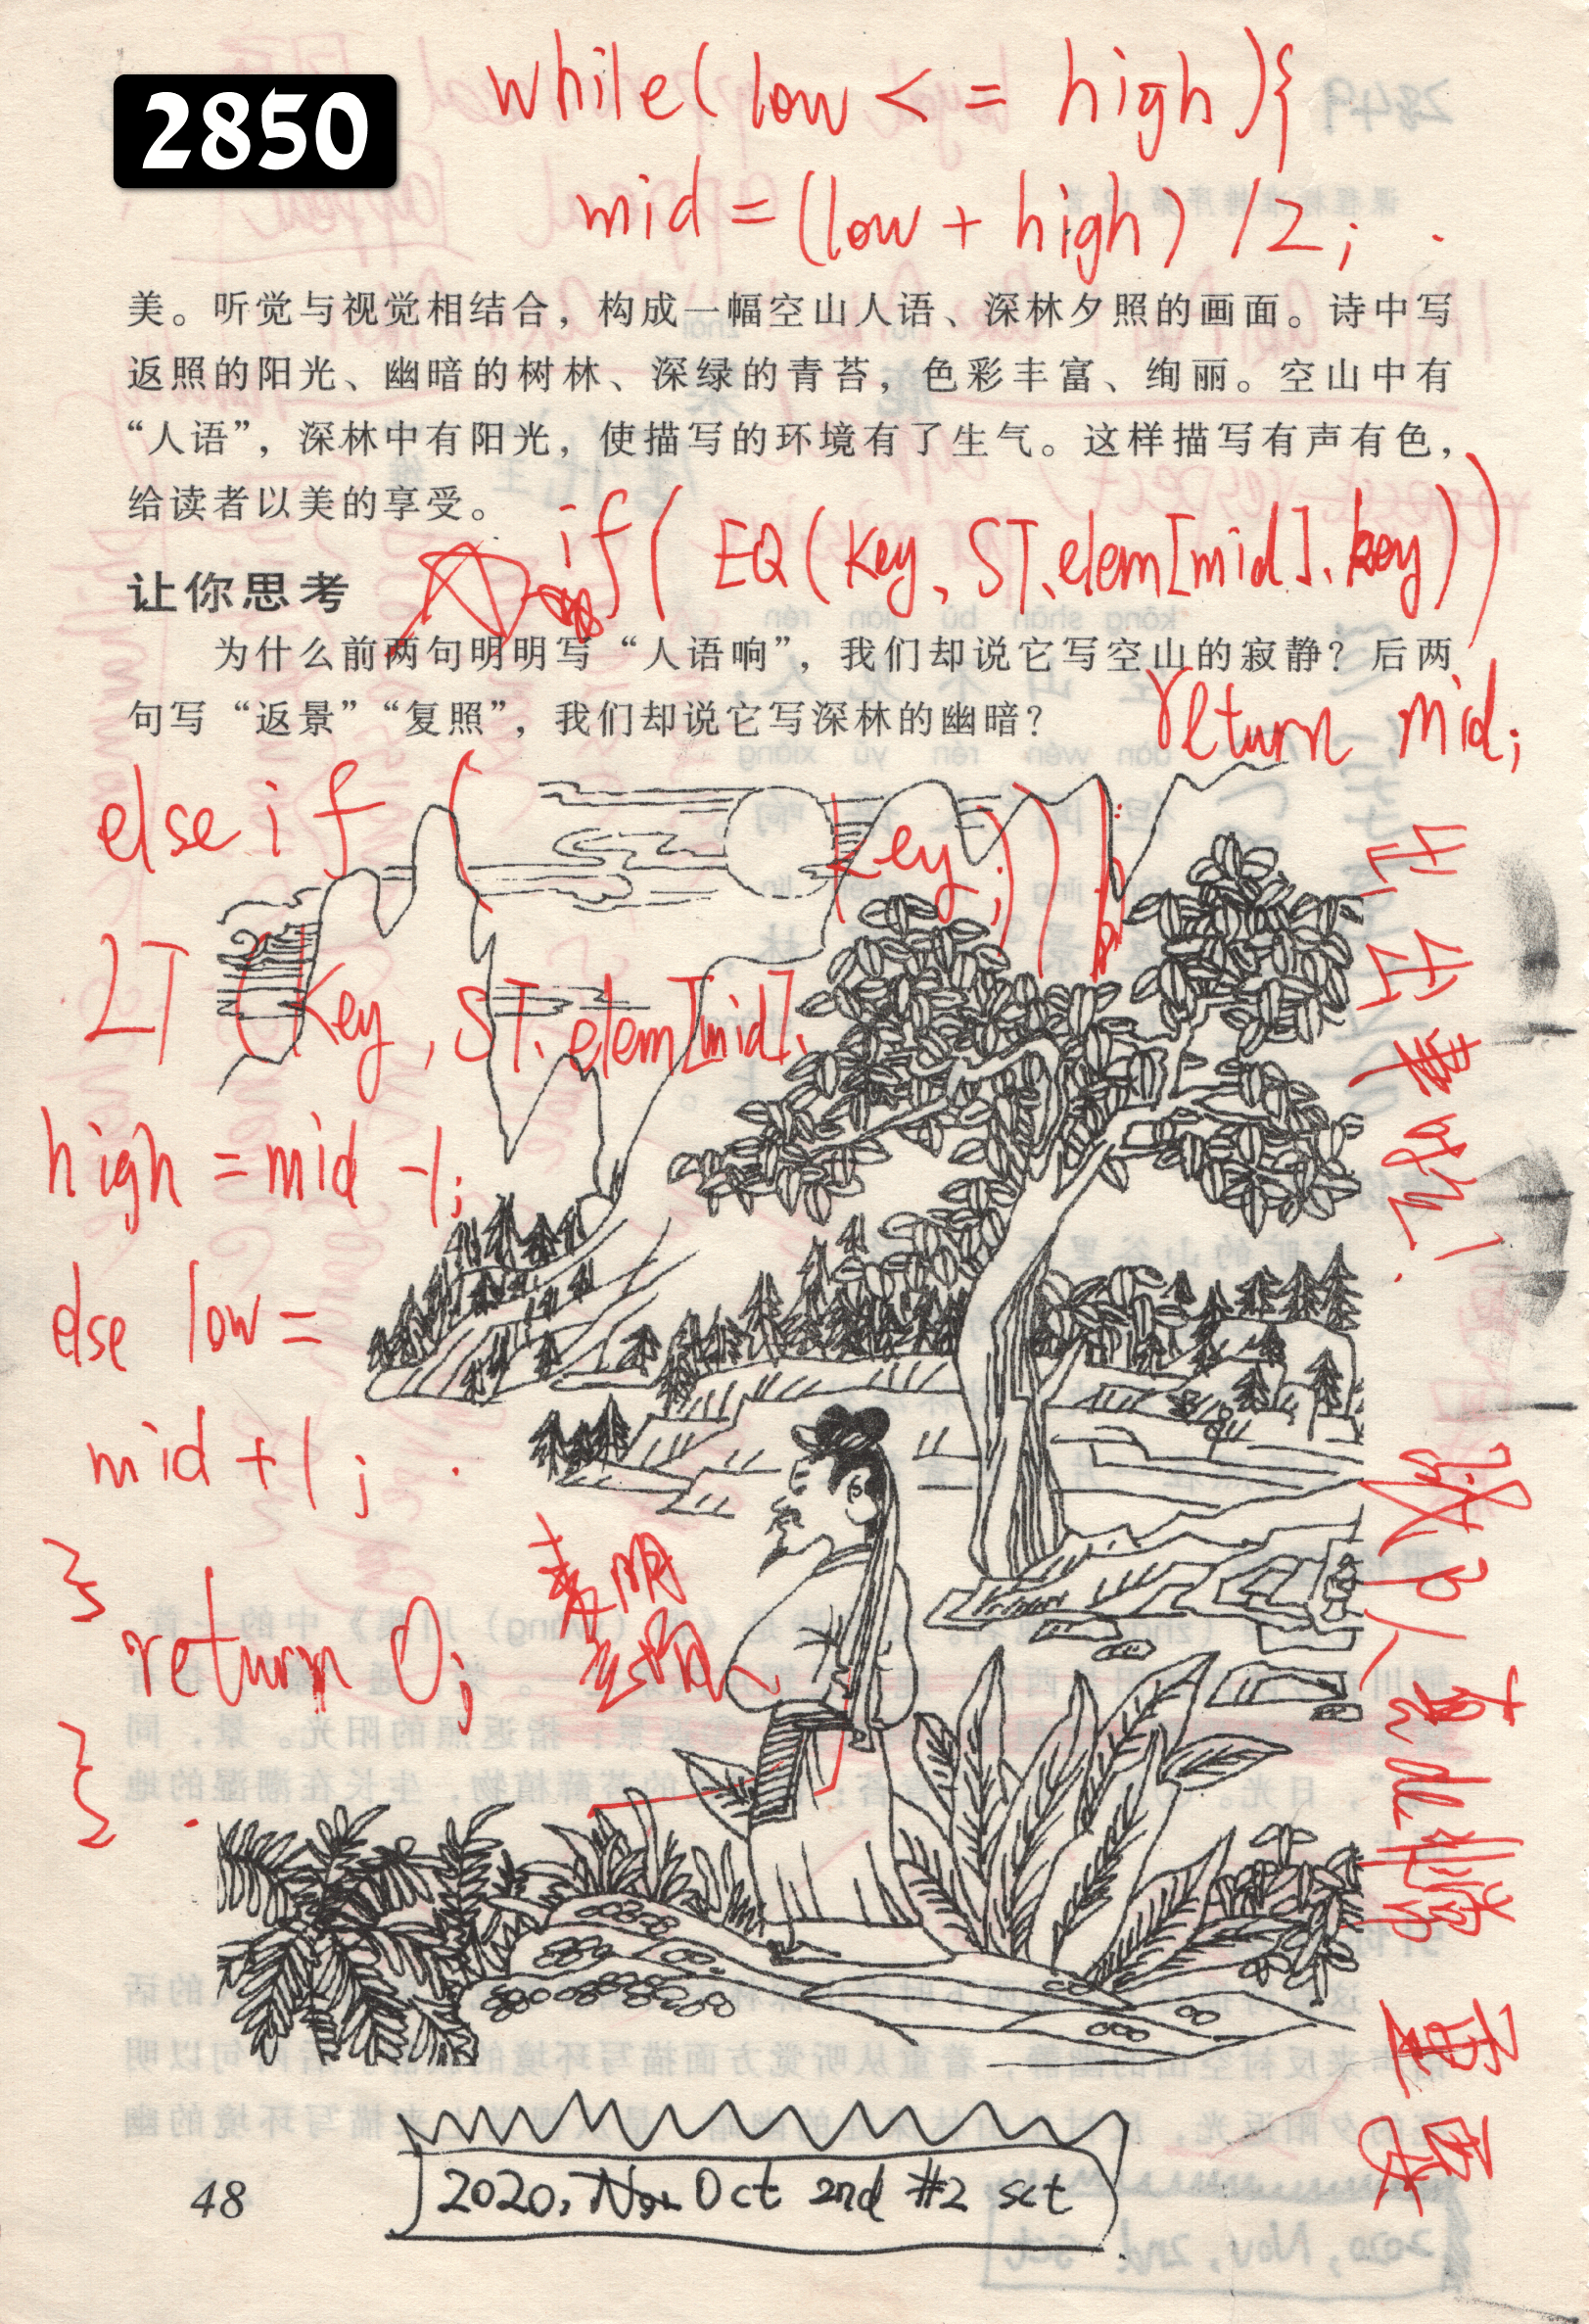 2850
while(low <= high){
mid = (low + high) /2;
美。听觉与视觉相结合，构成一幅空山人语、深林夕照的画面。诗中写
返照的阳光、幽暗的树林、深绿的青苔，色彩丰富、绚丽。空山中有
“人语”，深林中有阳光，使描写的环境有了生气。这样描写有声有色，
给读者以美的享受。
if( EQ(key, ST.elem[mid].key))
让你思考
为什么前两句明明写“人语响”，我们却说它写空山的寂静？后两
句写“返景”“复照”，我们却说它写深林的幽暗？
return mid;
else if (
LT (key, ST.elem[mid].
key;))
high = mid -1;
else low =
mid +1;
}
return 0;
}
48
2020, Oct 2nd #2 sct